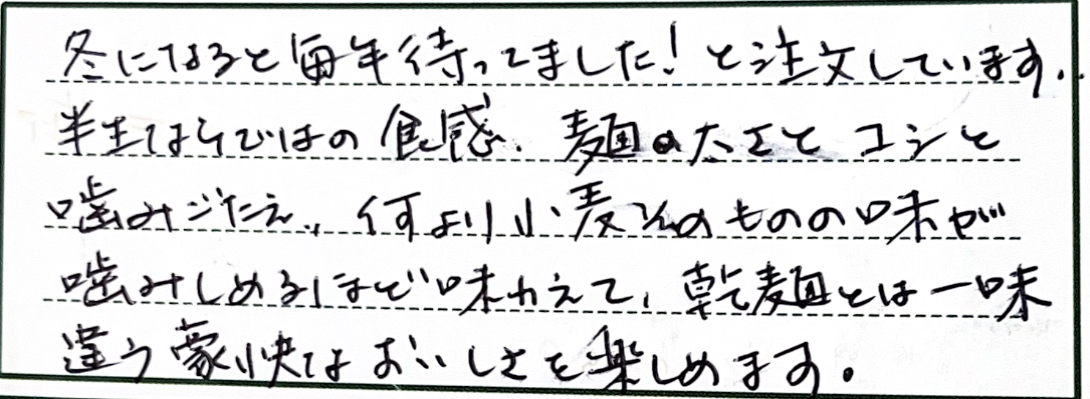 冬になると毎年待ってました!と注文しています。
半生ならではの食感、麺の太さとコシと
噛みごたえ、何より小麦そのものの味が
噛みしめるほど味わえて、乾麺とは一味
違う豪快なおいしさを楽しめます。